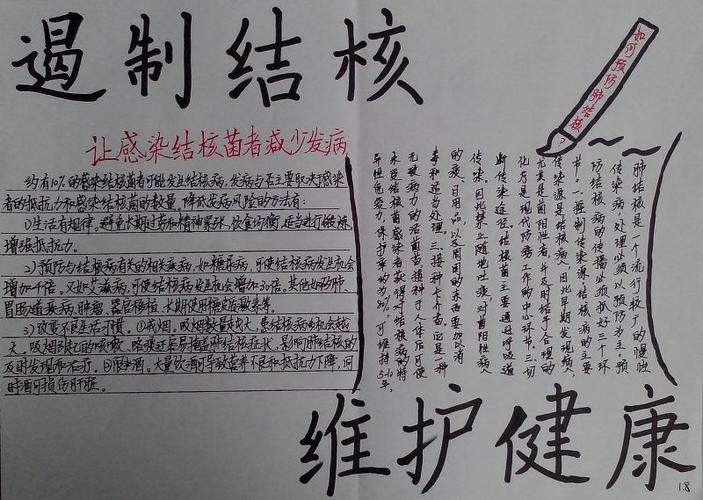 遏制结核
让感染结核菌者减少发病
约有10%的感染结核菌者可能发生结核病,发病与否主要取决感染
者的抵抗力和感染结核菌的数量,降低发病风险的方法有:
1)生活有规律,避免长期过劳和精神紧张,饮食均衡,适当进行锻炼
增强抵抗力。
2)预防与结核病有关的相关疾病,如糖尿病,可使结核病发生机会
增加4倍,又如艾滋病可使结核病发生机会增加30倍。其他如矽肺、
胃肠道疾病、肿瘤、器官移植、长期使用糖皮质激素等。
3)改变不良生活习惯。①戒烟。吸烟数量越大,患结核病机会越
大,吸烟引起的咳嗽、咯痰还容易掩盖肺结核症状,影响肺结核的
及时发现和治疗。②限制酒。大量饮酒可导致营养不良和抵抗力下降,同
时酒可损伤肝脏。
如何预防肺结核?
肺结核是一个流行较广的慢性
传染病,处理必须以预防为主,预
防结核病的传播必须抓好三个环
节:一、控制传染源,结核病的主要
传染源是结核病人,因此早期发现病人,
尤其是菌阳性者,并及时给予合理的
化疗是现代防痨工作的中心环节。二、切
断传染途径。结核菌主要通过呼吸道
传染,因此禁止随地吐痰,对菌阳性病
的痰、日用品,以及周围的东西要加以消
毒和适当处理。三、接种卡介苗。是一种
无致病力的活菌苗,接种于人体后可使
未受结核菌感染者获得对结核病的特
异性免疫力,保护率约为80%,可维持5-10年,
维护健康
18